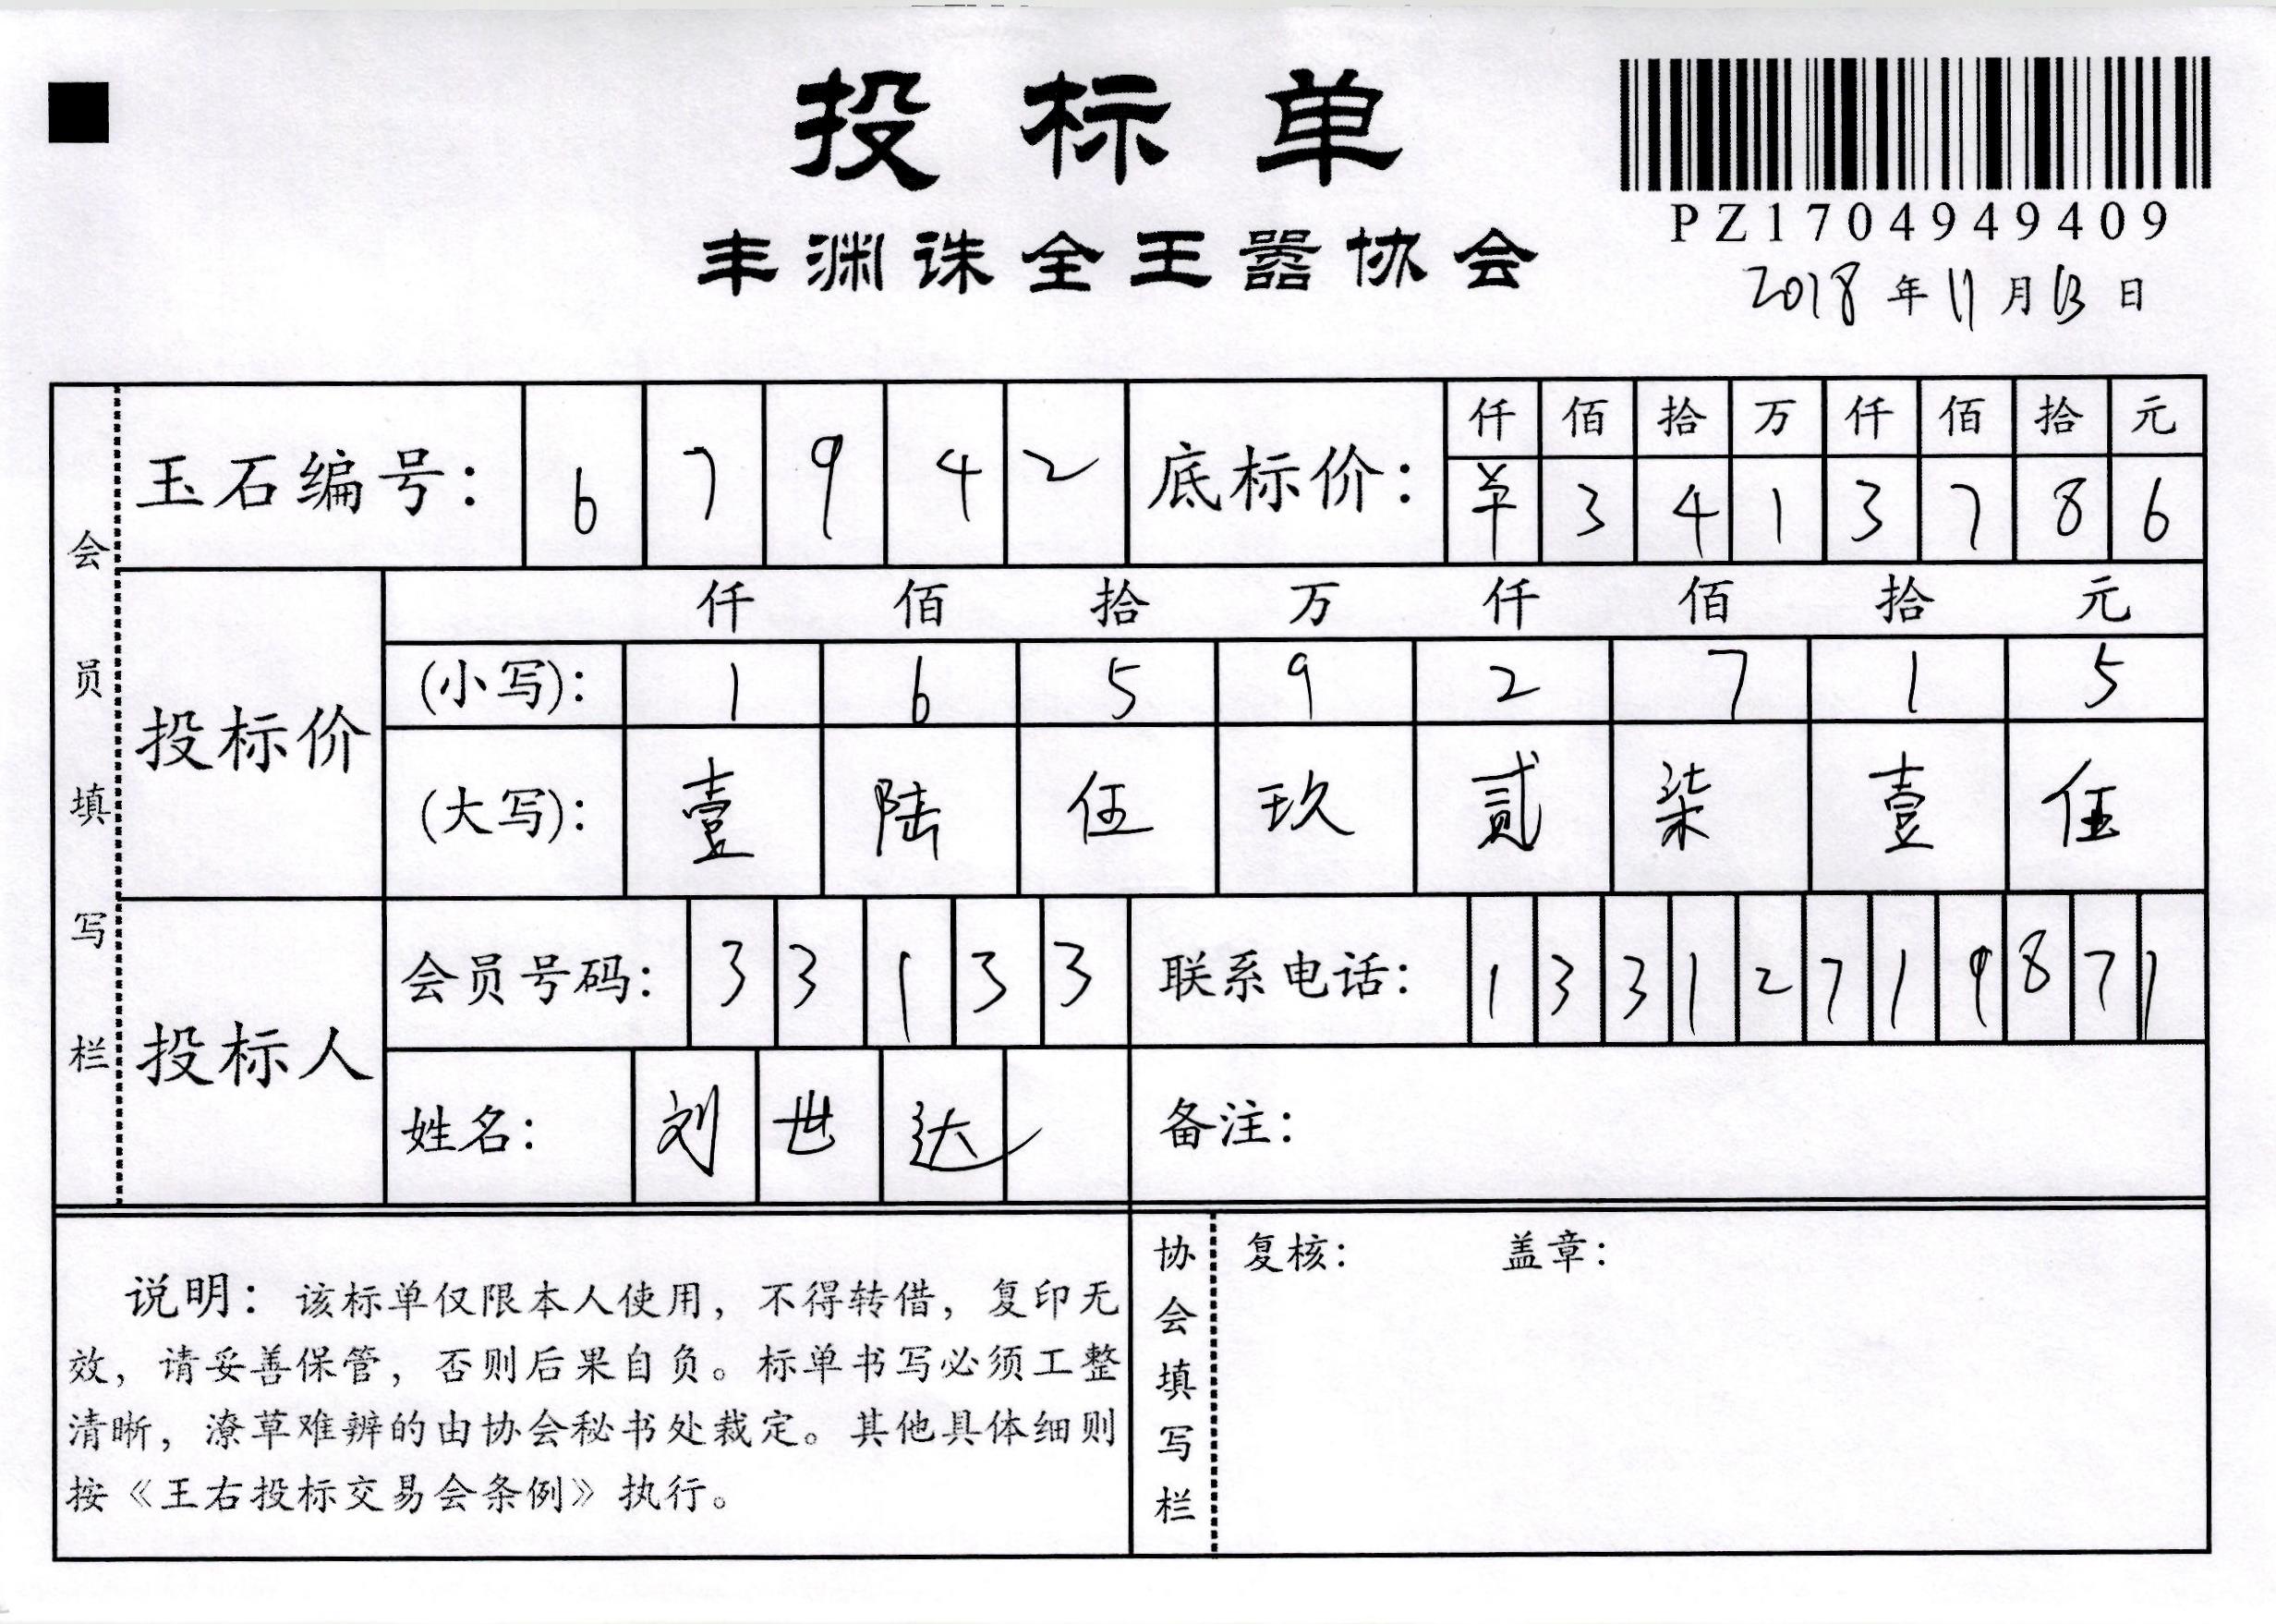 投标单
PZ1704949409
丰渊诛全王嚣协会
2018年11月13日
会员填写栏
玉石编号： 6 7 9 4 2
底标价： 仟 佰 拾 万 仟 佰 拾 元
羊 3 4 1 3 7 8 6
投标价
仟 佰 拾 万 仟 佰 拾 元
(小写)： 1 6 5 9 2 7 1 5
(大写)： 壹 陆 伍 玖 贰 柒 壹 伍
投标人
会员号码： 3 3 1 3 3
联系电话： 1 3 3 1 2 7 1 9 8 7 1
姓名： 刘 世 达
备注：
说明：该标单仅限本人使用，不得转借，复印无
效，请妥善保管，否则后果自负。标单书写必须工整
清晰，潦草难辨的由协会秘书处裁定。其他具体细则
按《王右投标交易会条例》执行。
协会填写栏
复核： 盖章：